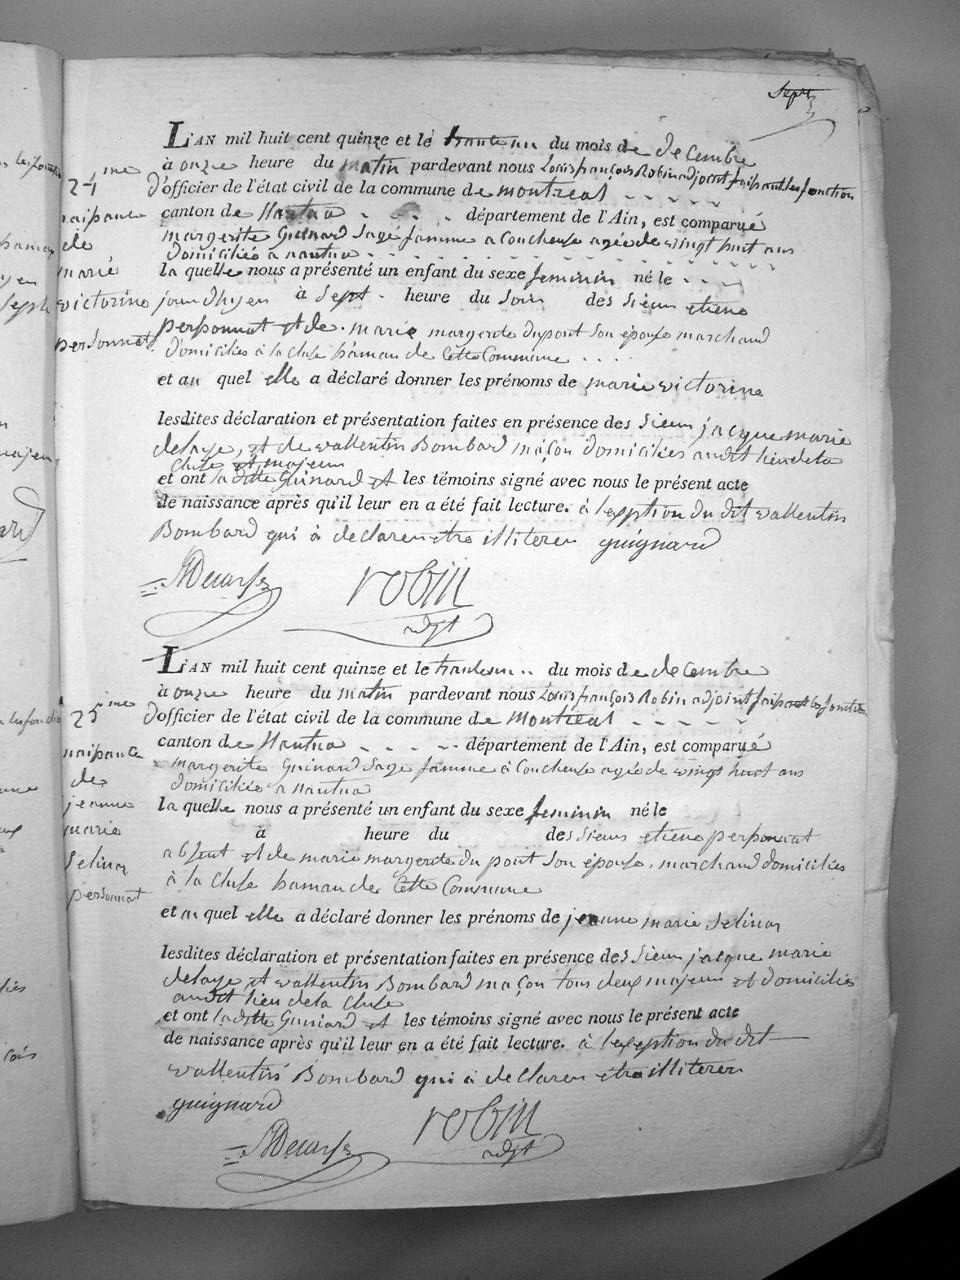 Sept
24me
naissance
de
marie
victorine
personnat
L'AN mil huit cent quinze et le trente un du mois de decembre
à onze heure du matin pardevant nous Louis françois Robin adjoint faisant les fonction
d'officier de l'état civil de la commune de montréal
canton de Nantua département de l'Ain, est comparué
margerite Guinard sage famme a coucheuse agée de vingt huit ans
domiciliée a nantua
la quelle nous a présenté un enfant du sexe feminin né le
jour d'hyer à sept heure du soir des sieur etiene
personnat et de marie margerite dupont son épouse marchand
domiciliés à la cluse hamau de cette Commune
et au quel elle a déclaré donner les prénoms de marie victorine
lesdites déclaration et présentation faites en présence des sieur jacque marie
delaye, et de vallentin Bombard maçon domiciliés audit lieu de la
cluse et majeur
et ont la ditte Guinard et les témoins signé avec nous le présent acte
de naissance après qu'il leur en a été fait lecture. à l'exeption du dit vallentin
Bombard qui à declaren etre illiteren guignard
robin
adjt
25me
naissance
de
jeanne
marie
selina
personnat
L'AN mil huit cent quinze et le trente un du mois de decembre
à onze heure du matin pardevant nous Louis françois Robin adjoint faisant les fonction
d'officier de l'état civil de la commune de Montréal
canton de Nantua département de l'Ain, est comparué
margerite Guinard sage famme à coucheuse agée de vingt huit ans
domiciliée a nantua
la quelle nous a présenté un enfant du sexe feminin né le
à heure du des sieur etiene personnat
absent et de marie margerite du pont son épouse marchand domiciliés
à la cluse hamau de cette Commune
et au quel elle a déclaré donner les prénoms de jeanne marie selina
lesdites déclaration et présentation faites en présence des sieur jacque marie
delaye et vallentin Bombard maçon tous deux majeur et domiciliés
audit lieu de la cluse
et ont la ditte Guinard et les témoins signé avec nous le présent acte
de naissance après qu'il leur en a été fait lecture. à l'exeption du dit
vallentin Bombard qui à declaren etre illiteren
guignard
robin
adjt